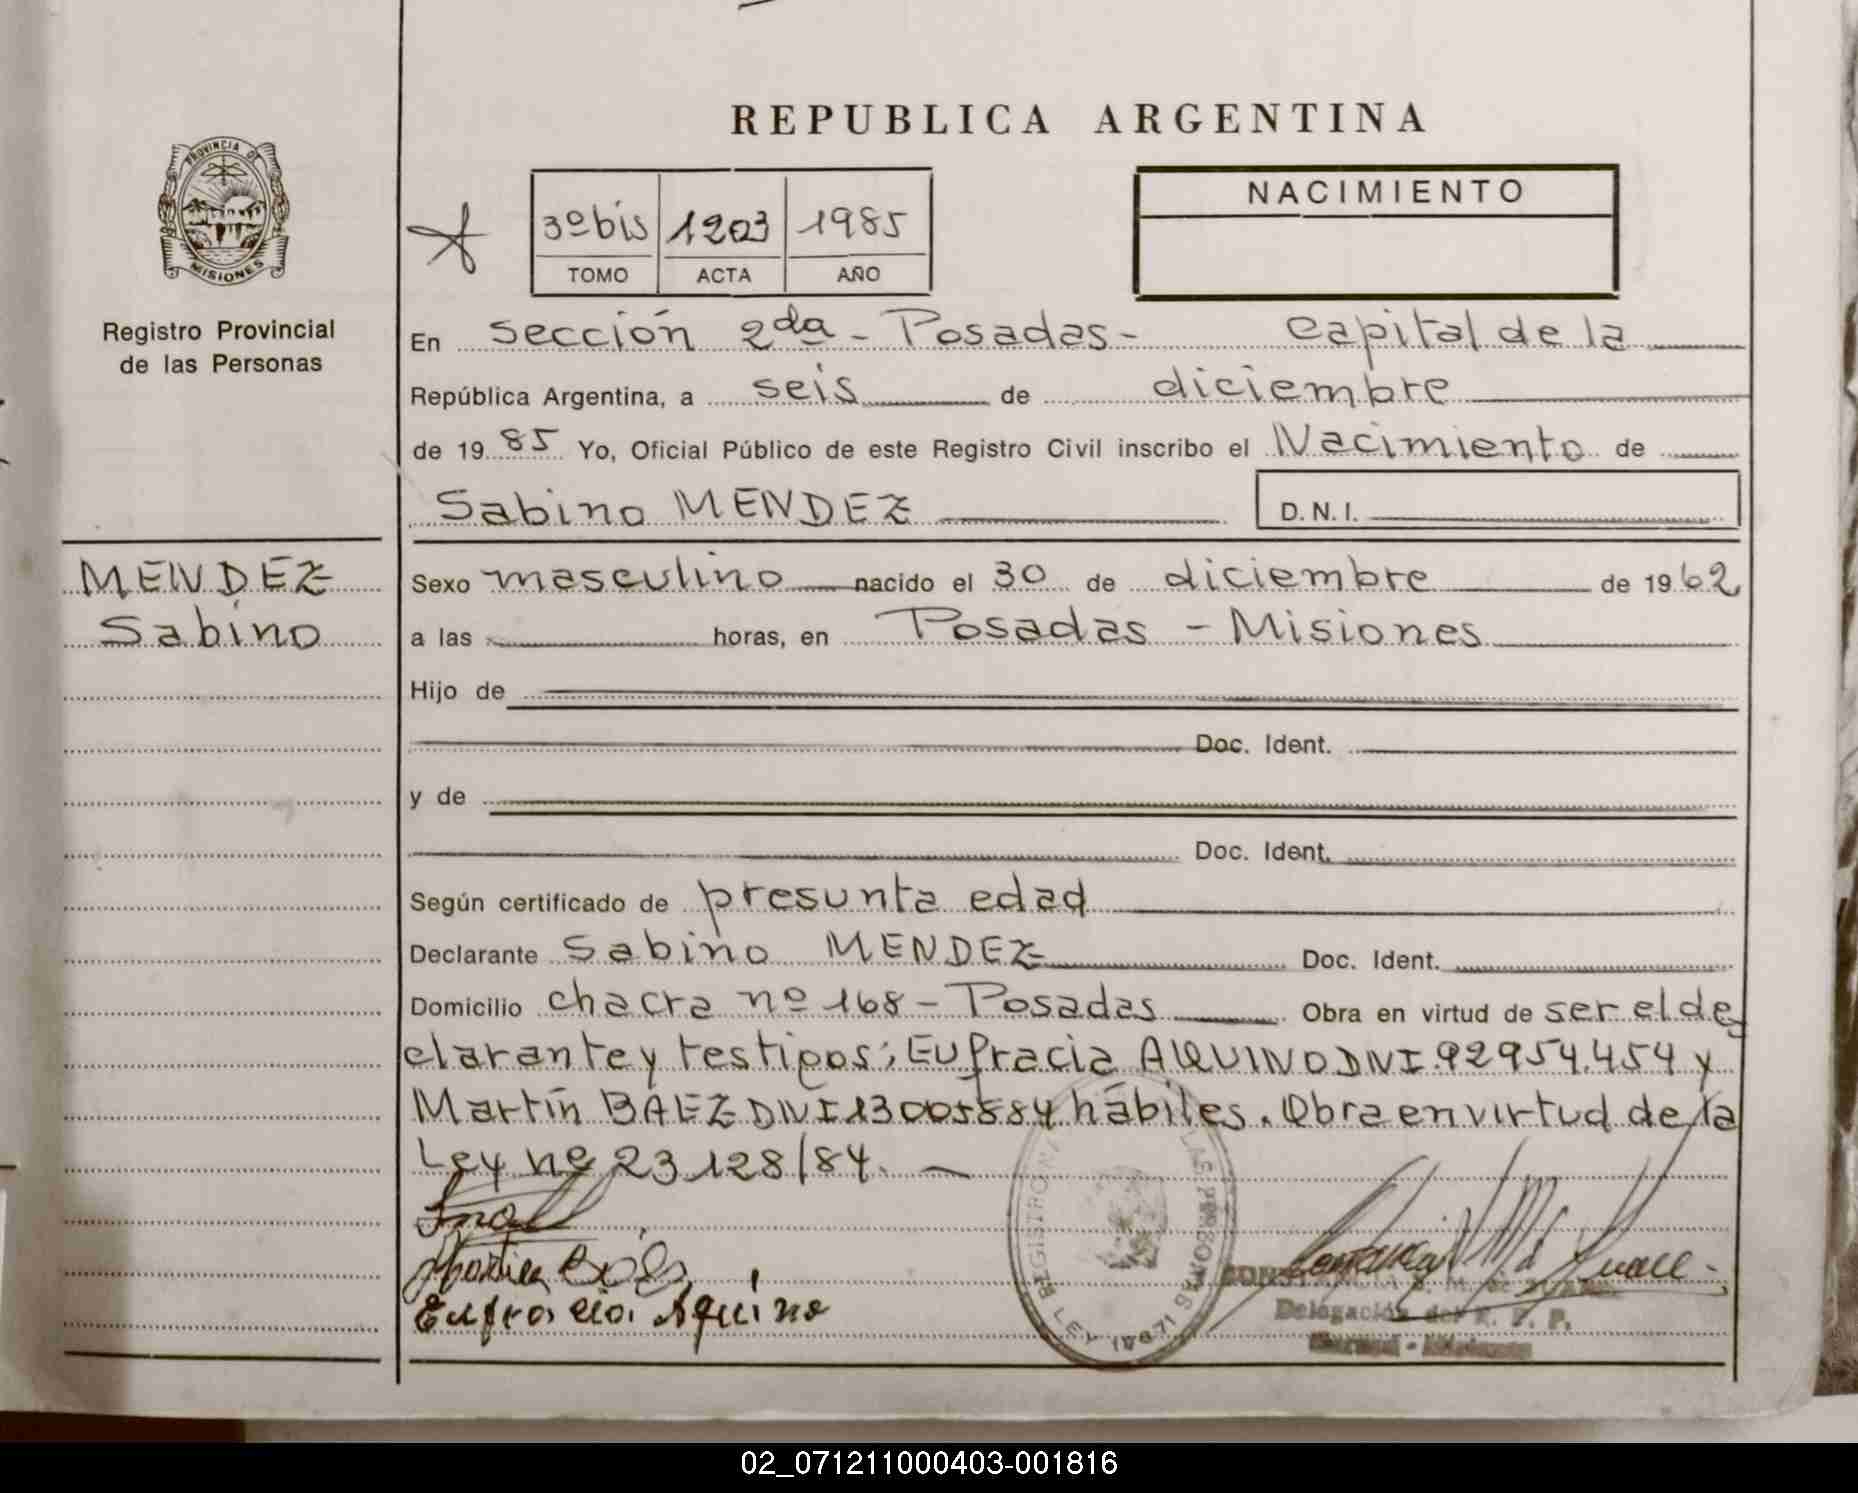 REPUBLICA ARGENTINA
PROVINCIA DE
MISIONES
Registro Provincial
de las Personas
3º bis 1203 1985
TOMO ACTA AÑO
NACIMIENTO
En sección 2da - Posadas - capital de la
República Argentina, a seis de diciembre
de 1985 Yo, Oficial Público de este Registro Civil inscribo el Nacimiento de
Sabino MENDEZ D.N.I.
MENDEZ
Sabino
Sexo masculino nacido el 30 de diciembre de 1962
a las horas, en Posadas - Misiones
Hijo de
Doc. Ident.
y de
Doc. Ident.
Según certificado de presunta edad
Declarante Sabino MENDEZ Doc. Ident.
Domicilio chacra nº 168 - Posadas Obra en virtud de ser el de
clarante y testigos; Eufracia AQUINO DNI.92954.454 y
Martín BAEZ DNI 13005884 hábiles. Obra en virtud de la
Ley nº 23.128/84. -
Martin
Eufracia Aquino
Delegación del R. P. P.
02_071211000403-001816